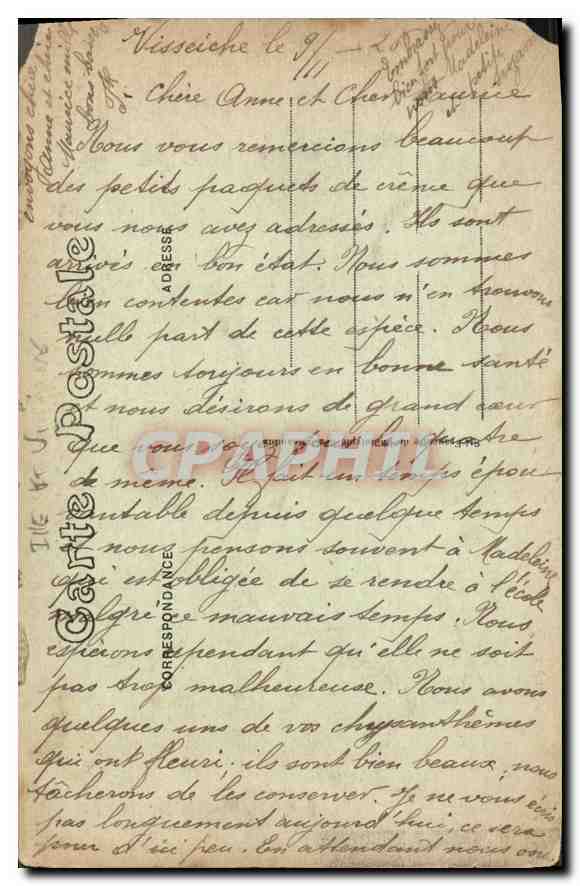 Visseiche le 9/11
Embrassez
bien fort pour
nous Madeleine
et petite
Suzanne
Chère Anne et Cher Maurice
Nous vous remercions beaucoup
des petits paquets de crême que
vous nous avez adressés. Ils sont
arrivés en bon état. Nous sommes
bien contentes car nous n'en trouvons
nulle part de cette espèce. Nous
sommes toujours en bonne santé
et nous désirons de grand cœur
que vous soyez tre
de même. Il fait un temps épou
vantable depuis quelque temps
nous pensons souvent à Madeleine
qui est obligée de se rendre à l'école
malgré ce mauvais temps. Nous
espérons cependant qu'elle ne soit
pas trop malheureuse. Nous avons
quelques uns de vos chrysanthêmes
qui ont fleuri. ils sont bien beaux, nous
tâcherons de les conserver. Je ne vous écris
pas longuement aujourd'hui, ce sera
pour d'ici peu. En attendant nous vous
envoyons chère
Anne et cher
Maurice mille
bons baisers
Carte Postale
ADRESSE
CORRESPONDANCE
CPAPHIL